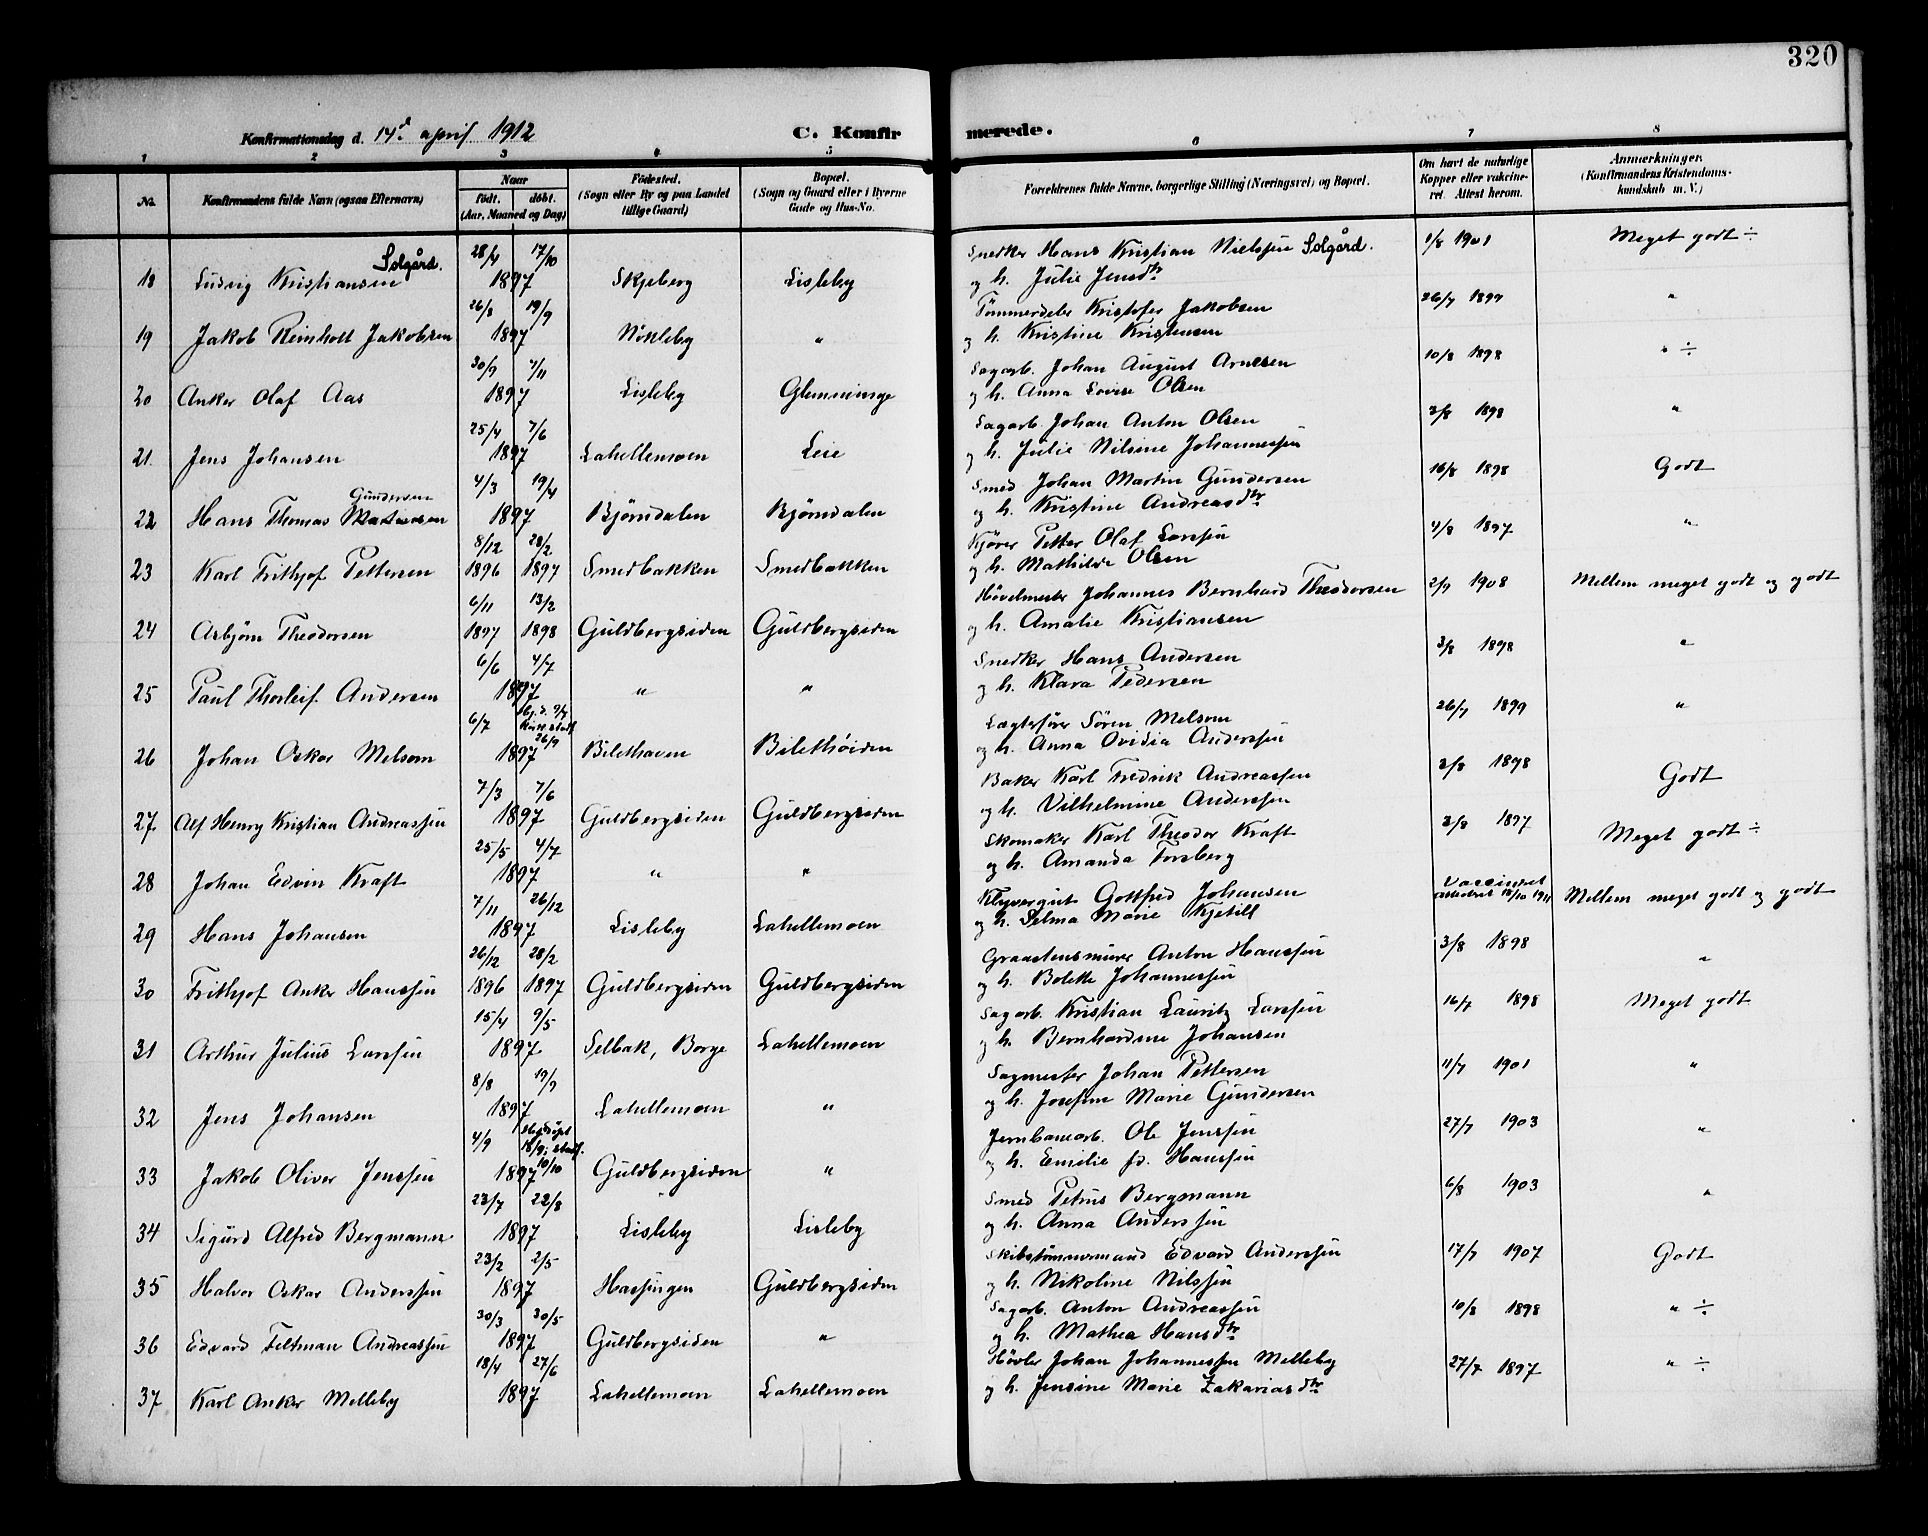 320
Konfirmationsdag d. 14d april 1912
C. Konfirmerede.
1 2 3 4 5 6 7 8
No. Konfirmandens fulde Navn (ogsaa Efternavn) Naar født. døbt. (Aar, Maaned og Dag) Fødested. (Sogn eller By og paa Landet tillige Gaard) Bopæl. (Sogn og Gaard eller i Byerne Gade og Hus-No. Forældrenes fulde Navne, borgerlige Stilling (Næringsvei) og Bopæl. Om havt de naturlige Kopper eller vakcineret. Attest herom. Anmærkninger (Konfirmandens Kristendomskundskab m. V.)
Solgård. 28/4 17/10 Snedker Hans Kristian Nielssen Solgård. 1/8 1901 Meget godt ÷
18 Ludvig Kristiansen 1897 Skjeberg Lisleby og h. Julie Jensdtr
26/8 19/9 Tømmerdeler Kristofer Jakobsen 26/7 1899 "
19 Jakob Reinholt Jakobsen 1897 Nökleby " og h. Kristine Kristensen
30/9 7/11 Sagarb. Johan August Arnesen 10/8 1898 " ÷
20 Anker Olaf Aas 1897 Lisleby Glemminge og h. Anna Lovise Olsen
25/4 7/6 Sagarb. Johan Anton Olsen 3/8 1898 "
21. Jens Johansen 1897 Lahellemoen Leie og h. Julie Nilsine Johannessen
Gundersen 4/3 19/4 Smed Johan Martin Gundersen 16/8 1898 Godt
22 Hans Thomas 1897 Bjørndalen Bjørndalen og h. Kristine Andreasdtr
8/12 28/2 Kjører Petter Olaf Larssen 4/8 1897 "
23 Karl Frithjof Pettersen 1896 1897 Smedbakken Smedbakken og h. Mathilde Olsen
6/11 13/2 Høvelmester Johannes Bernhard Theodorsen 2/9 1908 Mellem meget godt og godt
24 Asbjørn Theodorsen 1897 1898 Guldbergsiden Guldbergsiden og h. Amalie Kristiansen
6/6 4/7 Snedker Hans Andersen 3/8 1898 "
25 Paul Thorleif. Andersen 1897 " " og h. Klara Pedersen
6/7 Lægtefører Søren Melsom 26/7 1899 "
26 Johan Oskar Melsom 1897 26/9 Bilethaven Bilethöiden og h. Anna Ovidia Anderssen
7/3 7/6 Baker Karl Fredrik Andreassen 3/8 1898 Godt
27 Alf Henry Kristian Andreassen 1897 Guldbergsiden Guldbergsiden og h. Vilhelmine Anderssen
25/5 4/7 Skomaker Karl Theodor Kraft 3/8 1897 Meget godt ÷
28 Johan Edvin Kraft 1897 " " og h. Amanda Forsberg
7/11 26/12 Klyvergut Gottfred Johansen Vaccineret 1911 Mellem meget godt og godt
29 Hans Johansen 1897 Lisleby Lahellemoen og h. Selma Marie Kjetill
26/12 28/2 Graastensmurer Anton Hanssen 3/8 1898 "
30 Frithjof Anker Hanssen 1896 1897 Guldbergsiden Guldbergsiden og h. Bolette Johannessen
15/4 9/5 Sagarb. Kristian Lauritz Larssen 16/7 1898 Meget godt
31 Arthur Julius Larssen 1897 Selbak, Borge Lahellemoen og h. Bernhardine Johansen
8/8 19/9 Sagmester Johan Pettersen 11/7 1901 "
32 Jens Johansen 1897 Lahellemoen " og h. Josefine Marie Gundersen
4/9 Jernbanearb. Ole Jenssen 27/7 1903 "
33 Jakob Oliver Jenssen 1897 10/10 Guldbergsiden " og h. Emilie fd. Hanssen
23/7 22/8 Smed Petrus Bergmann 6/8 1903 "
34 Sigurd Alfred Bergmann 1897 Lisleby Lisleby og h. Anna Anderssen
23/2 2/5 Skibstømmermand Edvard Anderssen 17/7 1907 Godt
35 Halvor Oskar Anderssen 1897 Hassingen Guldbergsiden og h. Nikoline Nilssen
30/3 30/5 Sagarb. Anton Andreassen 10/8 1898 " ÷
36 Edvard Feltman Andreassen 1897 Guldbergsiden " og h. Mathea Hansdtr
18/4 27/6 Høvler Johan Johannessen Melleby 27/7 1897 " ÷
37 Karl Anker Melleby 1897 Lahellemoen Lahellemoen og h. Jensine Marie Zakariasdtr